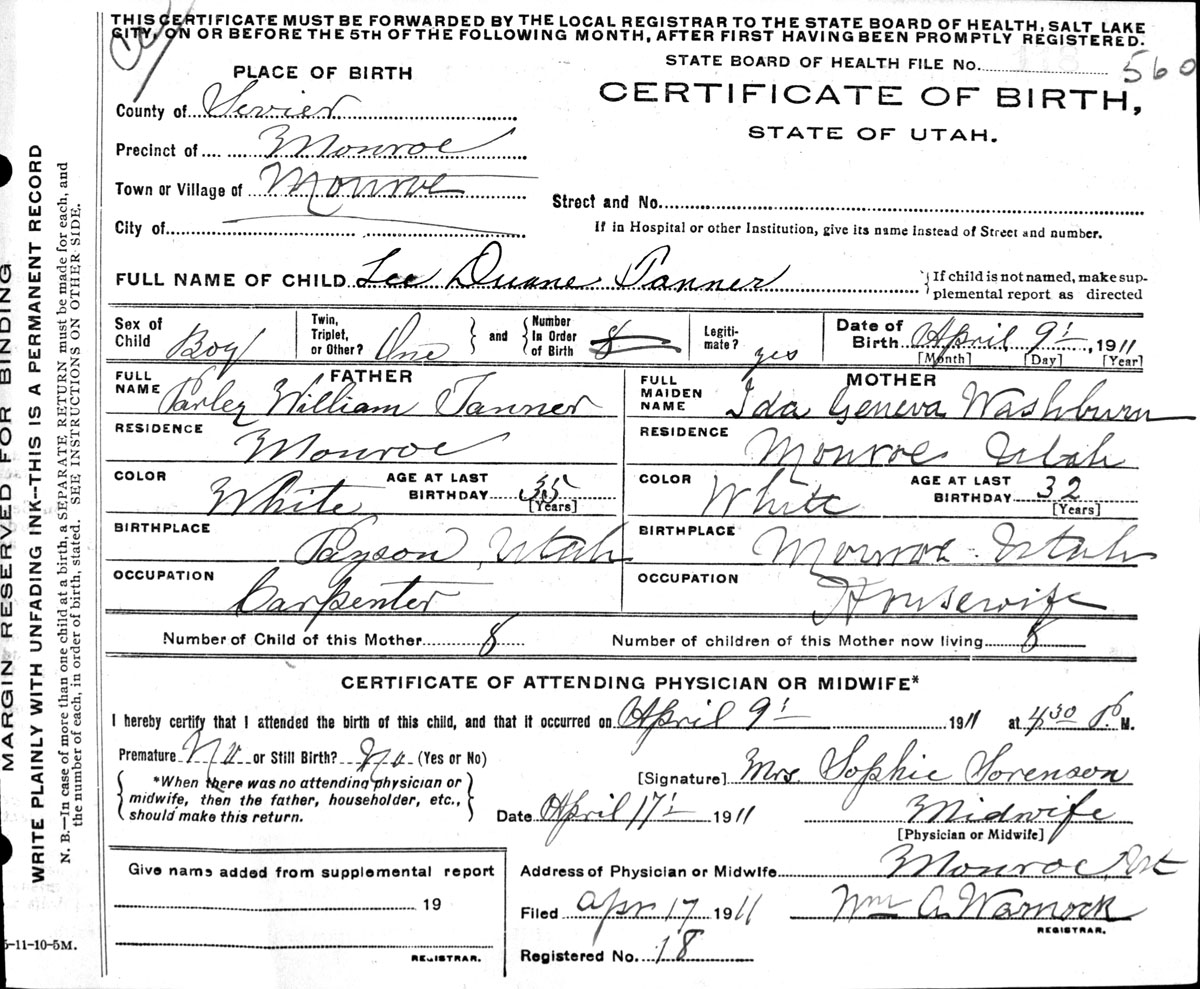 THIS CERTIFICATE MUST BE FORWARDED BY THE LOCAL REGISTRAR TO THE STATE BOARD OF HEALTH, SALT LAKE
CITY, ON OR BEFORE THE 5TH OF THE FOLLOWING MONTH, AFTER FIRST HAVING BEEN PROMPTLY REGISTERED.
STATE BOARD OF HEALTH FILE No. 560
PLACE OF BIRTH
CERTIFICATE OF BIRTH,
STATE OF UTAH.
County of Sevier
Precinct of Monroe
Town or Village of Monroe
Street and No.
City of
If in Hospital or other Institution, give its name instead of Street and number.
FULL NAME OF CHILD Lee Duane Tanner
If child is not named, make sup-
plemental report as directed
Sex of Child Boy
Twin, Triplet, or Other? One and Number In Order of Birth 8
Legiti-mate? yes
Date of Birth April 9, 1911
[Month] [Day] [Year]
FATHER
FULL NAME Parley William Tanner
RESIDENCE Monroe
COLOR White AGE AT LAST BIRTHDAY 35
[Years]
BIRTHPLACE Payson, Utah
OCCUPATION Carpenter
MOTHER
FULL MAIDEN NAME Ida Geneva Washburn
RESIDENCE Monroe Utah
COLOR White AGE AT LAST BIRTHDAY 32
[Years]
BIRTHPLACE Monroe Utah
OCCUPATION Housewife
Number of Child of this Mother 8 Number of children of this Mother now living 8
CERTIFICATE OF ATTENDING PHYSICIAN OR MIDWIFE*
I hereby certify that I attended the birth of this child, and that it occurred on April 9 1911 at 4 30 P. M.
Premature No or Still Birth? No (Yes or No)
*When there was no attending physician or
midwife, then the father, householder, etc.,
should make this return.
[Signature] Mrs Sophie Sorenson
Date April 17 1911 Midwife
[Physician or Midwife]
Address of Physician or Midwife Monroe, Ut
Filed Apr 17 1911 Wm A. Warnock
REGISTRAR.
Registered No. 18
Give name added from supplemental report
19
REGISTRAR.
5-11-10-5M.
MARGIN RESERVED FOR BINDING
WRITE PLAINLY WITH UNFADING INK—THIS IS A PERMANENT RECORD
N. B.—In case of more than one child at a birth, a SEPARATE RETURN must be made for each, and
the number of each, in order of birth, stated. SEE INSTRUCTIONS ON OTHER SIDE.